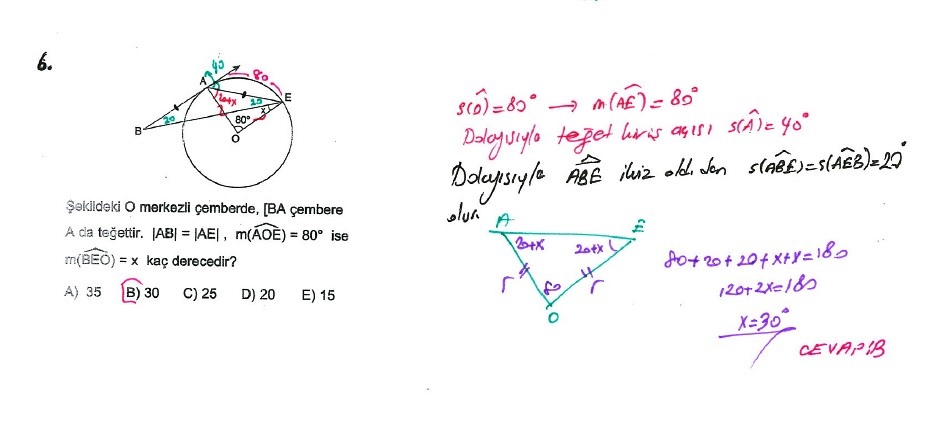 6.
40
80
A
20+x
20
E
x
B
20
80°
O
Şekildeki O merkezli çemberde, [BA çembere
A da teğettir. |AB| = |AE| , m(AOE) = 80° ise
m(BEO) = x kaç derecedir?
A) 35 B) 30 C) 25 D) 20 E) 15
s(O) = 80° → m(AE) = 80°
Dolayısıyla teğet kiriş açısı s(A) = 40°
Dolayısıyla ABE ikiz old. dan s(ABE)=s(AEB)=20°
olur
A
E
20+x
20+x
r
80
r
O
80+20+20+x+x=180
120+2x=180
x=30°
CEVAP:B